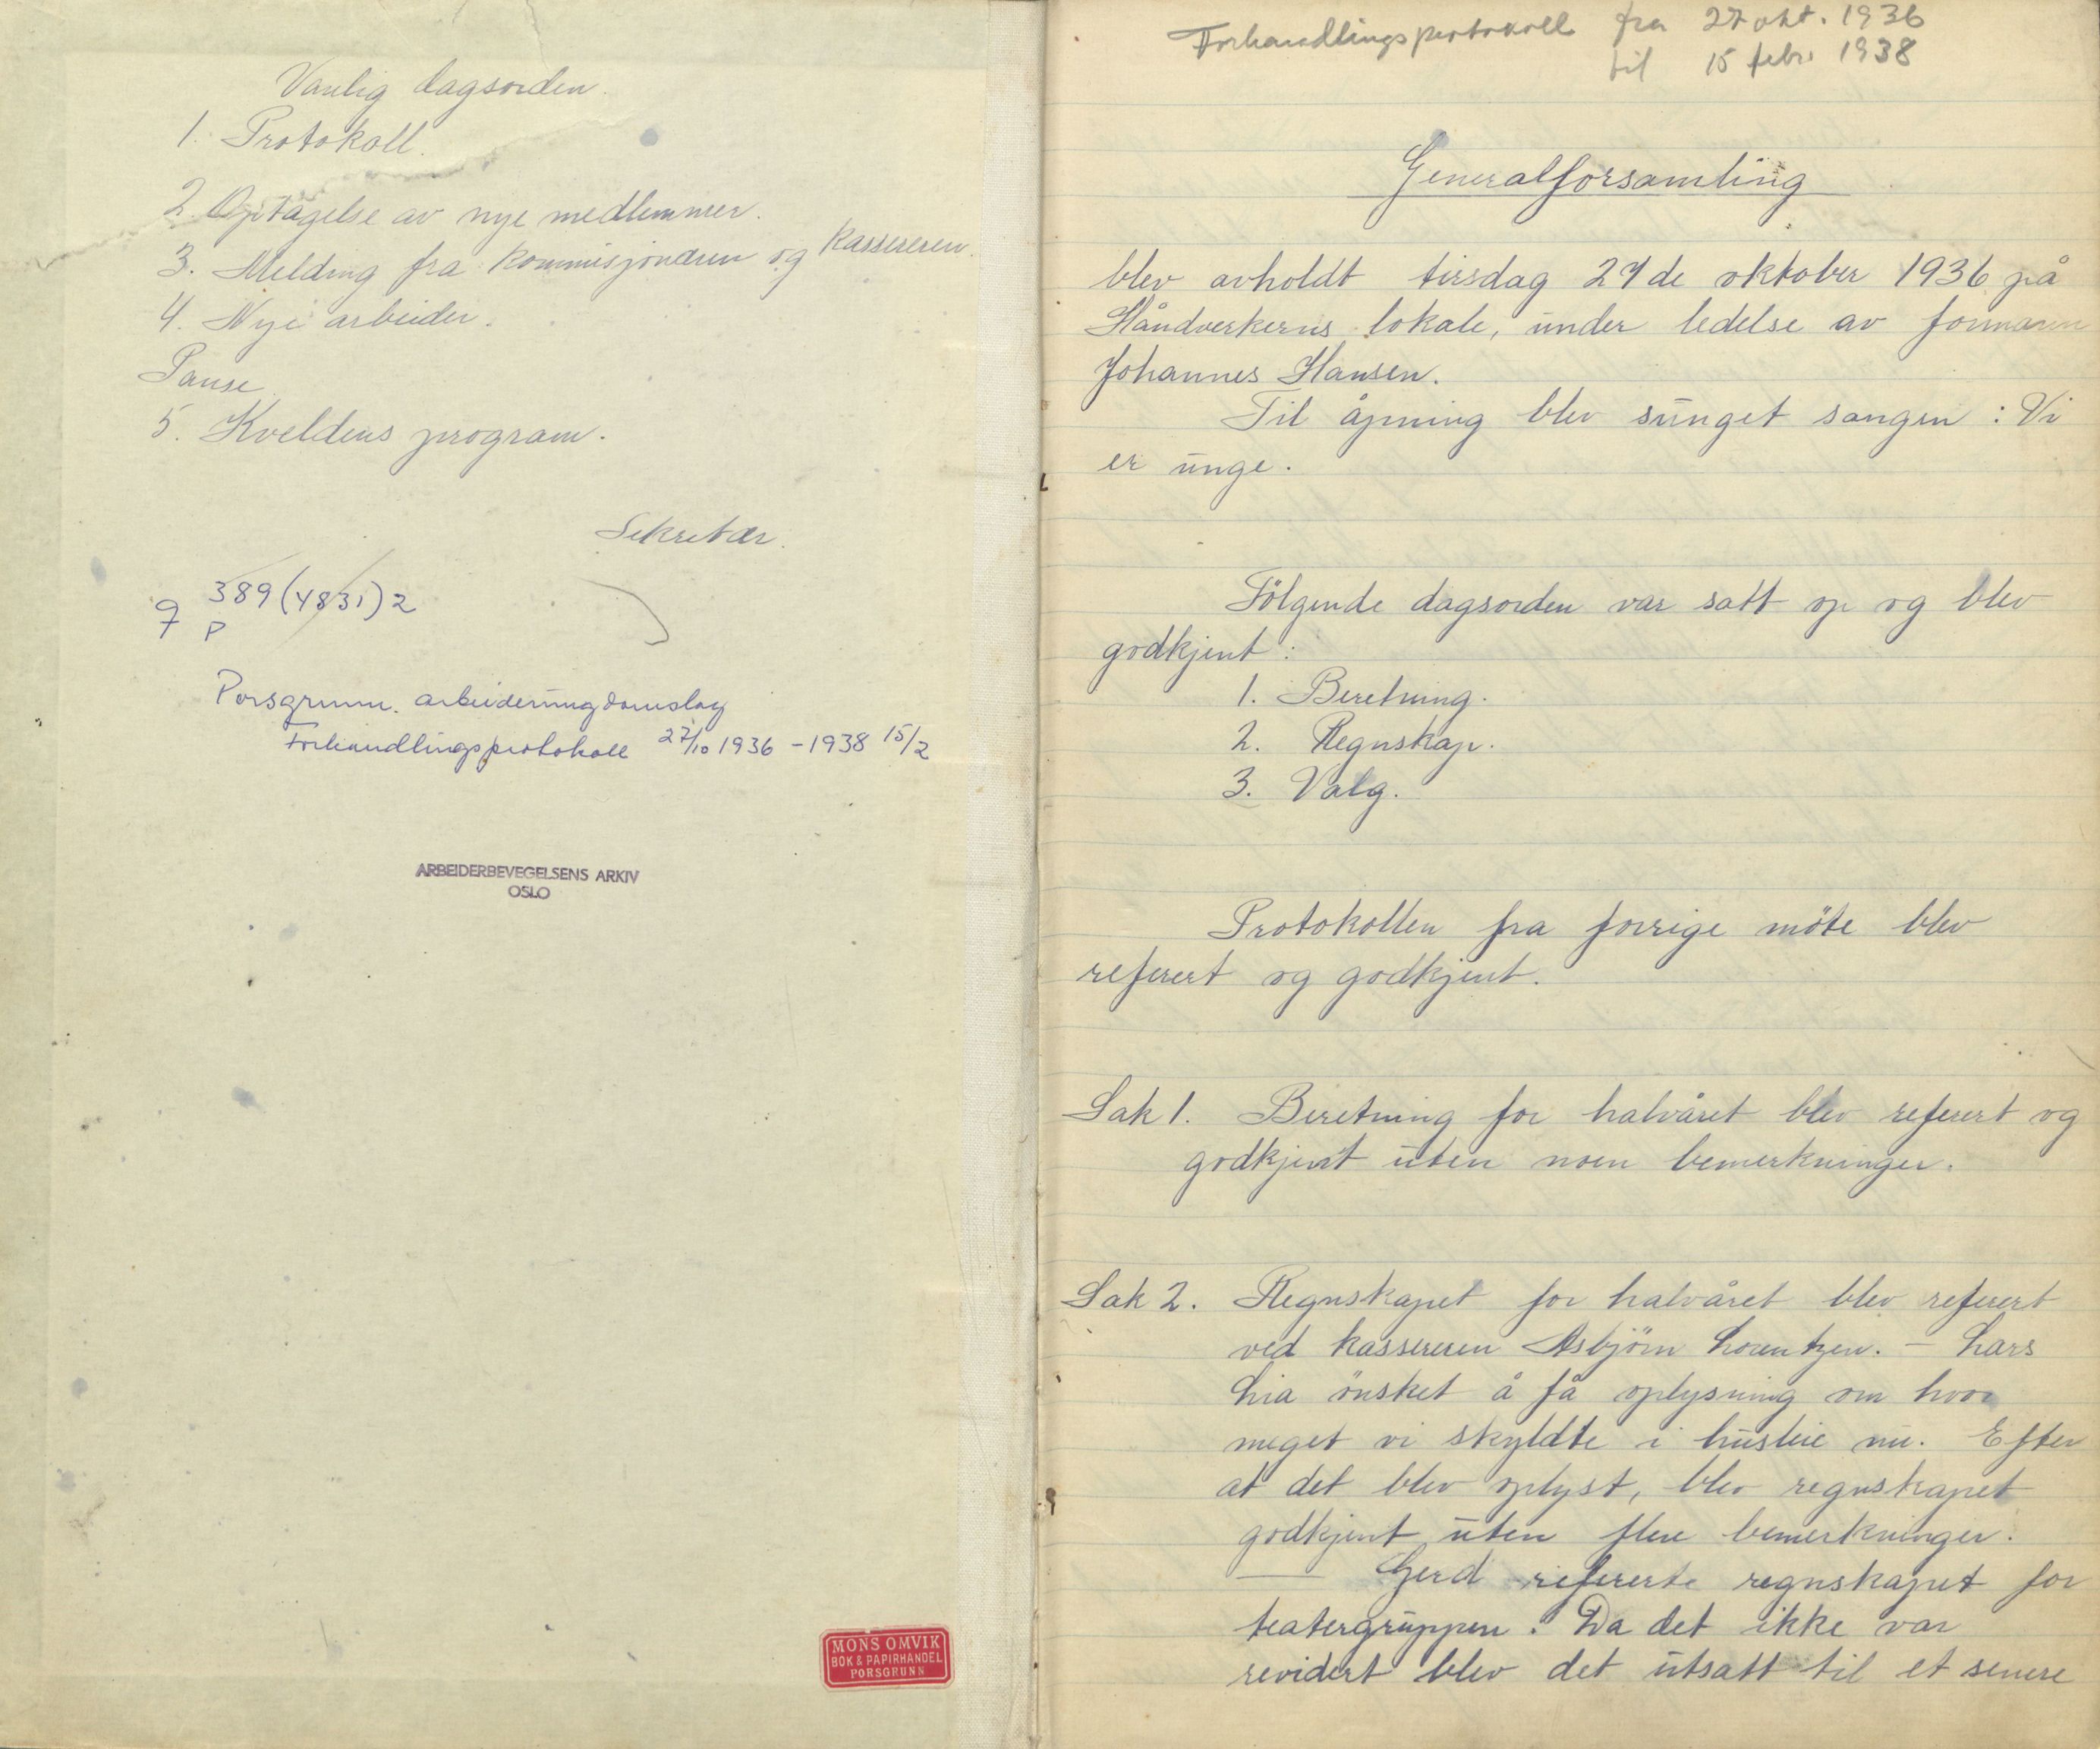 Vanlig dagsorden.
1. Protokoll.
2. Optagelse av nye medlemmer.
3. Melding fra kommisjonæren og kassereren.
4. Nye arbeider.
Pause
5. Kveldens program.
Sekretær.
389(4831)2
P
Porsgrunn. arbeiderungdomslag
Forhandlingsprotokoll 27/10 1936 - 1938 15/2
ARBEIDERBEVEGELSENS ARKIV
OSLO
MONS OMVIK
BOK & PAPIRHANDEL
PORSGRUNN
Forhandlingsprotokoll fra 27 okt. 1936
til 15 febr 1938
Generalforsamling
blev avholdt tirsdag 27de oktober 1936 på
Håndverkerns lokale, under ledelse av formann
Johannes Hansen.
Til åpning blev sunget sangen: Vi
er unge.
Følgende dagsorden var satt op og blev
godkjent:
1. Beretning.
2. Regnskap.
3. Valg.
Protokollen fra forrige möte blev
referert og godkjent.
Sak 1. Beretning for halvåret blev referert og
godkjent uten noen bemerkninger.
Sak 2. Regnskapet for halvåret blev referert
ved kassereren Asbjörn Lorentzen. - Lars
Lia önsket å få oplysning om hvor
meget vi skyldte i husleie nu. Efter
at det blev oplyst, blev regnskapet
godkjent uten flere bemerkninger.
Gerd refererte regnskapet for
teatergruppen. Da det ikke var
revidert blev det utsatt til et senere